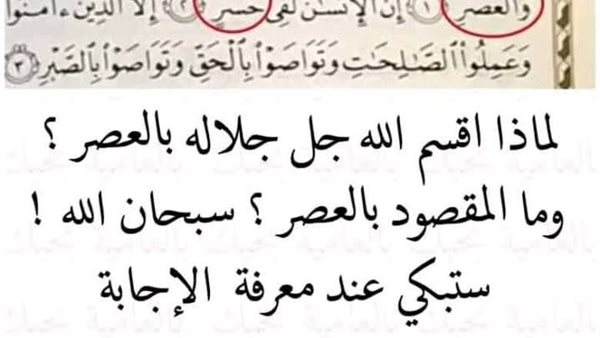 وَالْعَصْرِ ﴿١﴾ إِنَّ الْإِنسَانَ لَفِى خُسْرٍ ﴿٢﴾ إِلَّا الَّذِينَ ءَامَنُوا
وَعَمِلُوا الصَّالِحَاتِ وَتَوَاصَوْا بِالْحَقِّ وَتَوَاصَوْا بِالصَّبْرِ ﴿٣﴾
لماذا اقسم الله جل جلاله بالعصر ؟
وما المقصود بالعصر ؟ سبحان الله !
ستبكي عند معرفة الإجابة